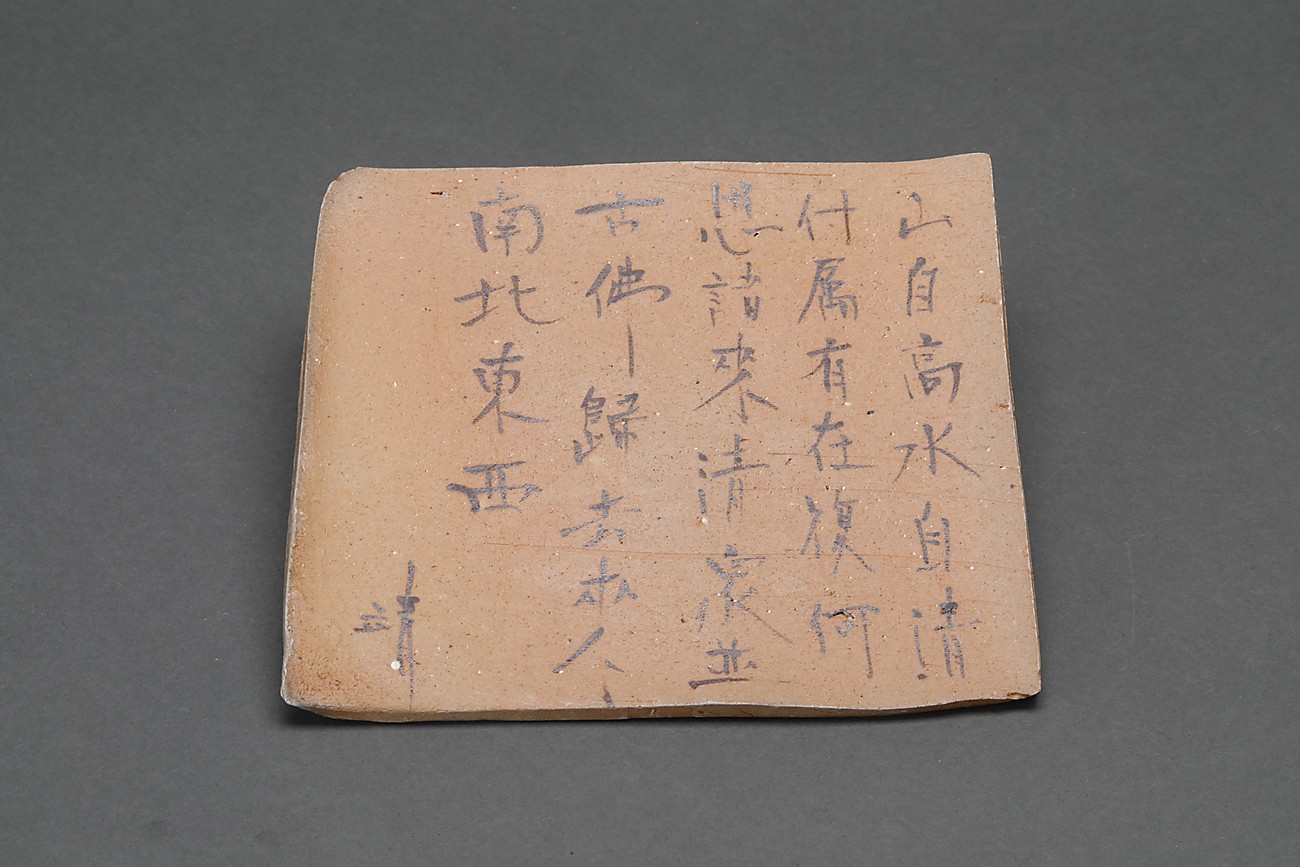 山自高水自清
付属有在復何
思諸来清衆並
古佛一歸去来人
南北東西
靖